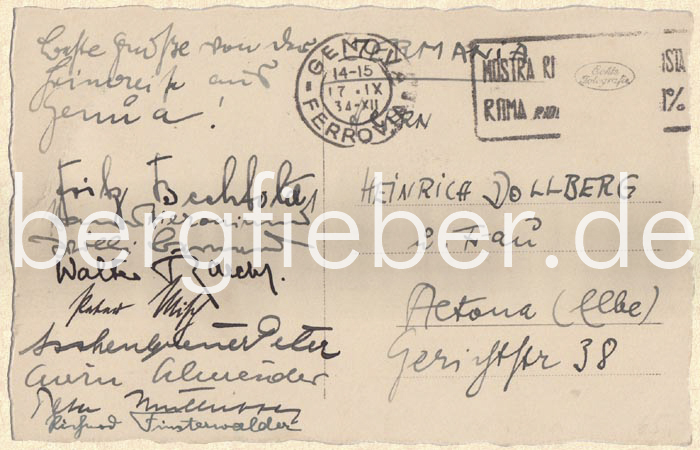 Beste Grüße von der
Heimreise aus
Genua!
Fritz Bechtold
Walter Raechl.
Peter Misch
Aschenbrenner Peter
Erwin Schneider
Peter Müllritter
Richard Finsterwalder
GENOVA
14-15
17.IX
34-XII
FERROVIA
MOSTRA RI
ROMA
Echte
Fotografie
ISTA
1%
GERMANIA
HEINRICH DOLLBERG
u. Frau
Altona (Elbe)
Gerichtstr 38
bergfieber.de